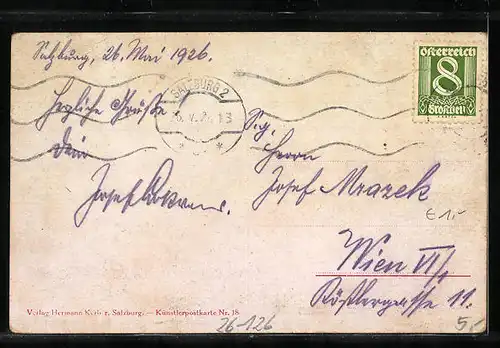 Salzburg, 26. Mai 1926.
Herzliche Grüße!
Dein
Josef
SALZBURG 2
österreich
8
Groschen
Herrn
Josef Mrazek
Wien VI/1
Köstlergasse 11.
€ 1,-
Verlag Hermann Kerb z. Salzburg. — Künstlerpostkarte Nr. 18
26-126
5,-